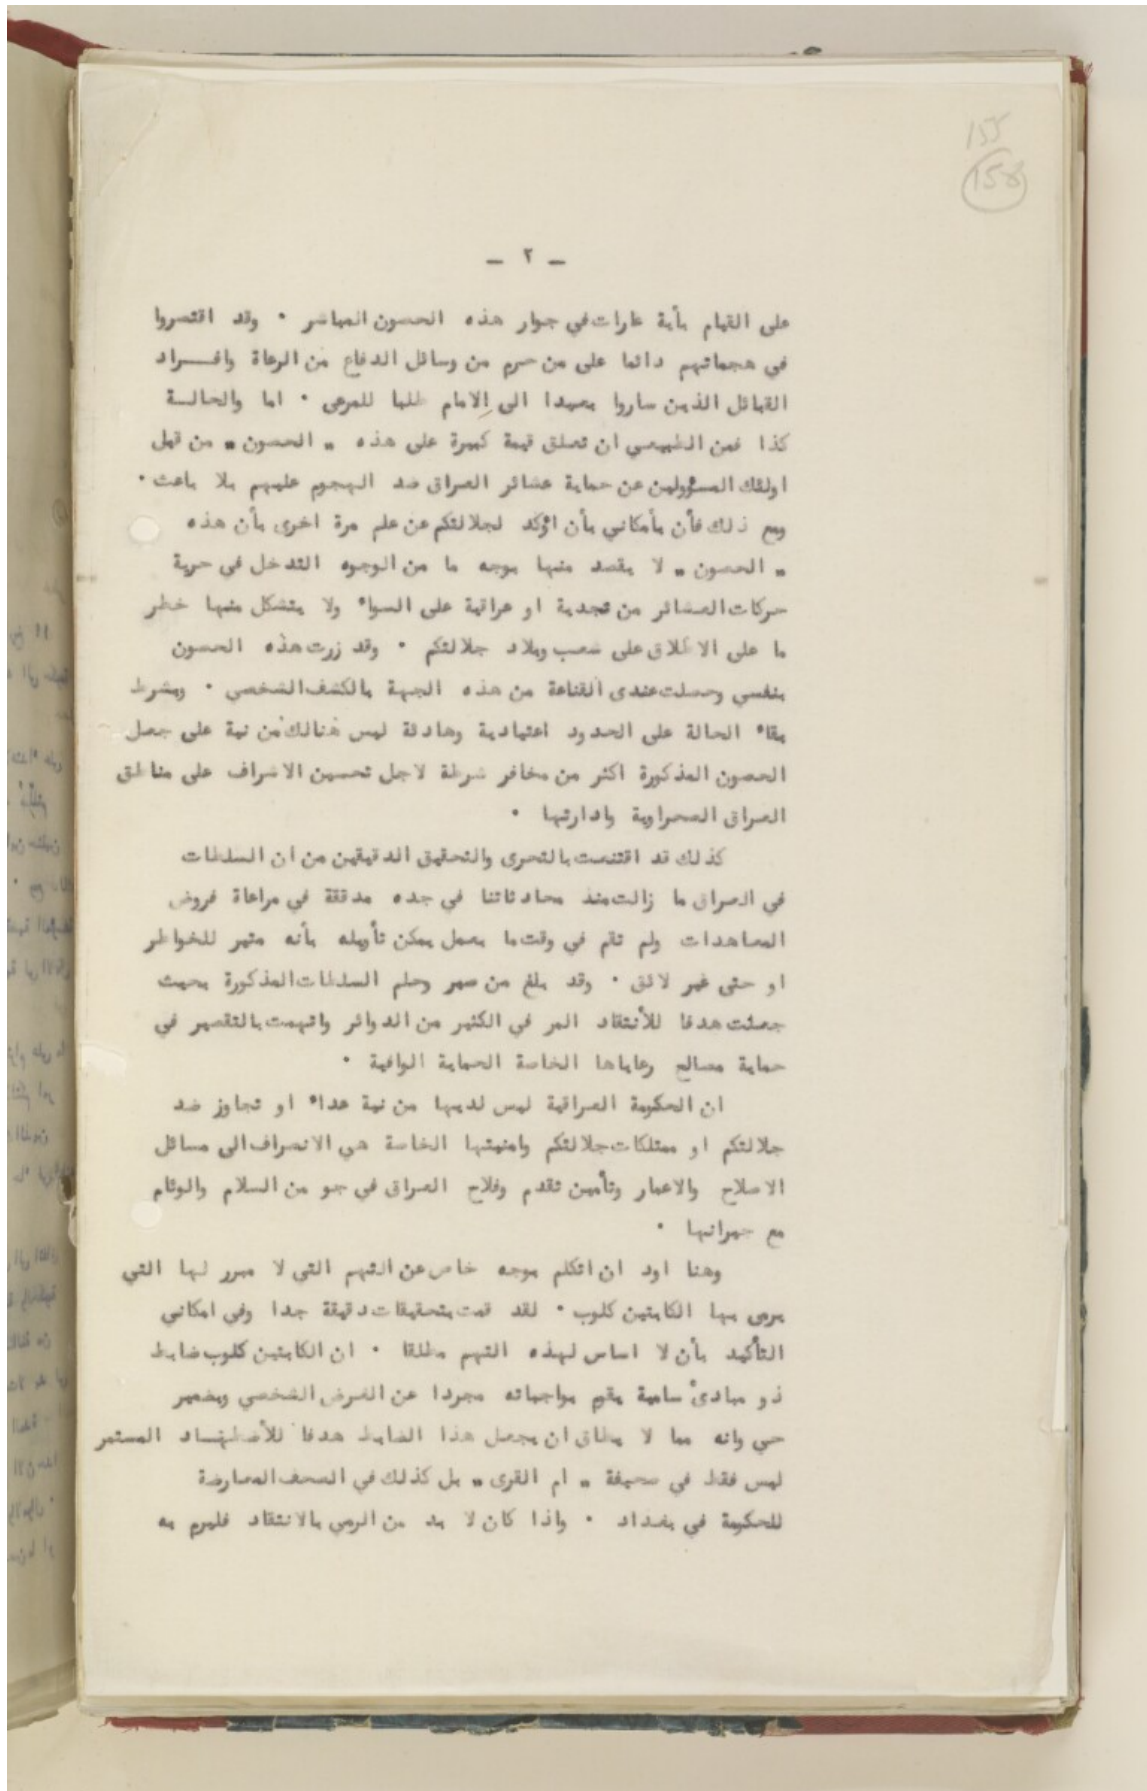 155
158
- ٢ -
على القيام بأية غارات في جوار هذه الحصون المباشر · وقد اقتصروا
في هجماتهم دائما على من حرم من وسائل الدفاع من الرعاة وافـــراد
القبائل الذين ساروا بعيدا الى الامام طلبا للمرعى · اما والحالـــة
كذا فمن الطبيعي ان تعلق قيمة كبيرة على هذه „ الحصون „ من قبل
اولئك المسؤولين عن حماية عشائر العراق ضد الهجوم عليهم بلا باعث ·
ومع ذلك فأن بأمكاني بأن اؤكد لجلالتكم عن علم مرة اخرى بأن هذه
„ الحصون „ لا يقصد منها بوجه ما من الوجوه التدخل في حرية
حركات العشائر من نجدية او عراقية على السواء ولا يتشكل منها خطر
ما على الاطلاق على شعب وبلاد جلالتكم · وقد زرت هذه الحصون
بنفسي وحصلت عندى القناعة من هذه الجهة بالكشف الشخصي · وبشرط
بقاء الحالة على الحدود اعتيادية وهادئة ليس هنالك من نية على جعل
الحصون المذكورة اكثر من مخافر شرطة لاجل تحسين الاشراف على مناطق
العراق الصحراوية وادارتها ·
كذلك قد اقتنعت بالتحرى والتحقيق الدقيقين من ان السلطات
في العراق ما زالت منذ محادثاتنا في جده مدققة في مراعاة فروض
المعاهدات ولم تقم في وقت ما بعمل يمكن تأويله بأنه مثير للخواطر
او حتى غير لائق · وقد بلغ من صبر وحلم السلطات المذكورة بحيث
جعلت هدفا للأنتقاد المر في الكثير من الدوائر واتهمت بالتقصير في
حماية مصالح رعاياها الخاصة الحماية الوافية ·
ان الحكومة العراقية ليس لديها من نية عداء او تجاوز ضد
جلالتكم او ممتلكات جلالتكم وامنيتها الخاصة هي الانصراف الى مسائل
الاصلاح والاعمار وتأمين تقدم وفلاح العراق في جو من السلام والوئام
مع جيرانها ·
وهنا اود ان اتكلم بوجه خاص عن التهم التى لا مبرر لها التي
يرمى بها الكابتين كلوب · لقد قمت بتحقيقات دقيقة جدا وفى امكاني
التأكيد بأن لا اساس لهذه التهم مطلقا · ان الكابتين كلوب ضابط
ذو مبادئ سامية يقوم بواجباته مجردا عن الغرض الشخصي وبضمير
حي وانه مما لا يطاق ان يجعل هذا الضابط هدفا للأضطهـــاد المستمر
ليس فقط في صحيفة „ ام القرى „ بل كذلك في الصحف المعارضة
للحكومة في بغداد · واذا كان لا بد من الرمي بالانتقاد فليرم به